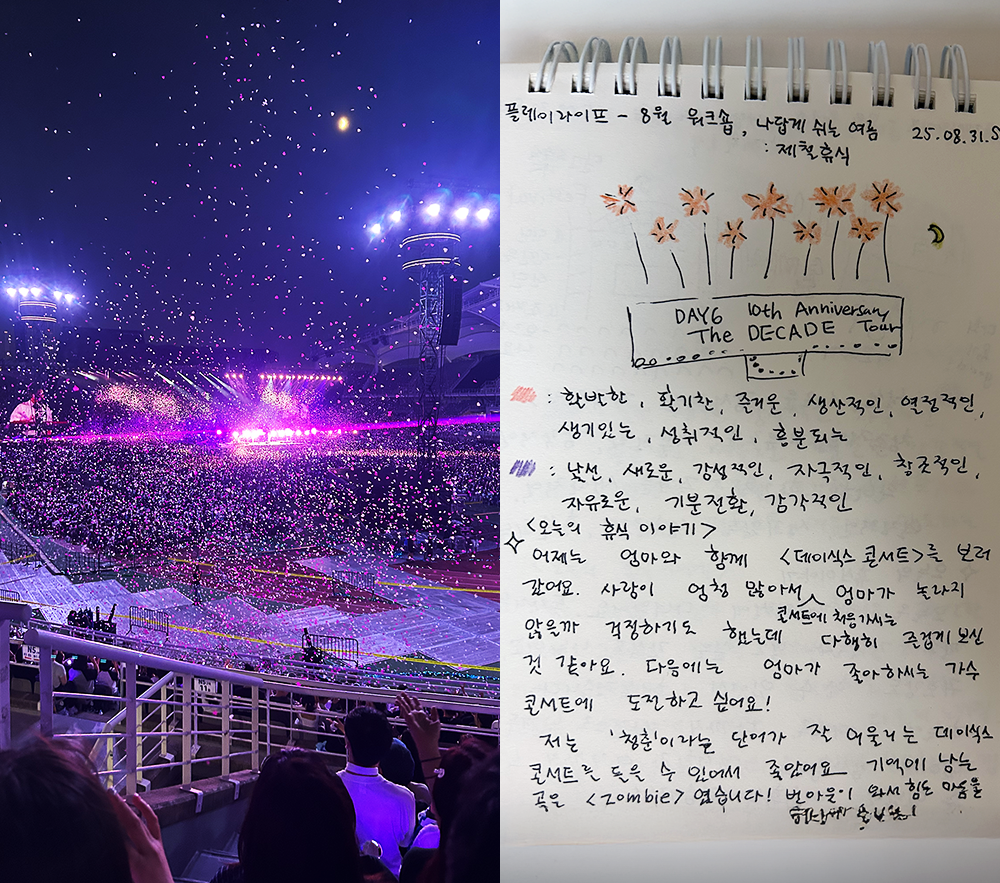 플레이라이프 - 8월 워크숍, 나답게 쉬는 여름 25.08.31.S
: 제철휴식
DAY6 10th Anniversary
The DECADE Tour
: 활발한, 활기찬, 즐거운, 생산적인, 열정적인,
생기있는, 성취적인, 흥분되는
: 낯선, 새로운, 감성적인, 자극적인, 창조적인,
자유로운, 기분전환, 감각적인
<오늘의 휴식 이야기>
어제는 엄마와 함께 <데이식스 콘서트>를 보러
갔어요. 사람이 엄청 많아서 엄마가 놀라지
콘서트에 처음가시는
않을까 걱정하기도 했는데 다행히 즐겁게 보신
것 같아요. 다음에는 엄마가 좋아하시는 가수
콘서트에 도전하고 싶어요!
저는 '청춘'이라는 단어가 잘 어울리는 데이식스
콘서트를 들을 수 있어서 좋았어요 기억에 남는
곡은 <Zombie> 였습니다! 번아웃이 와서 힘든 마음을